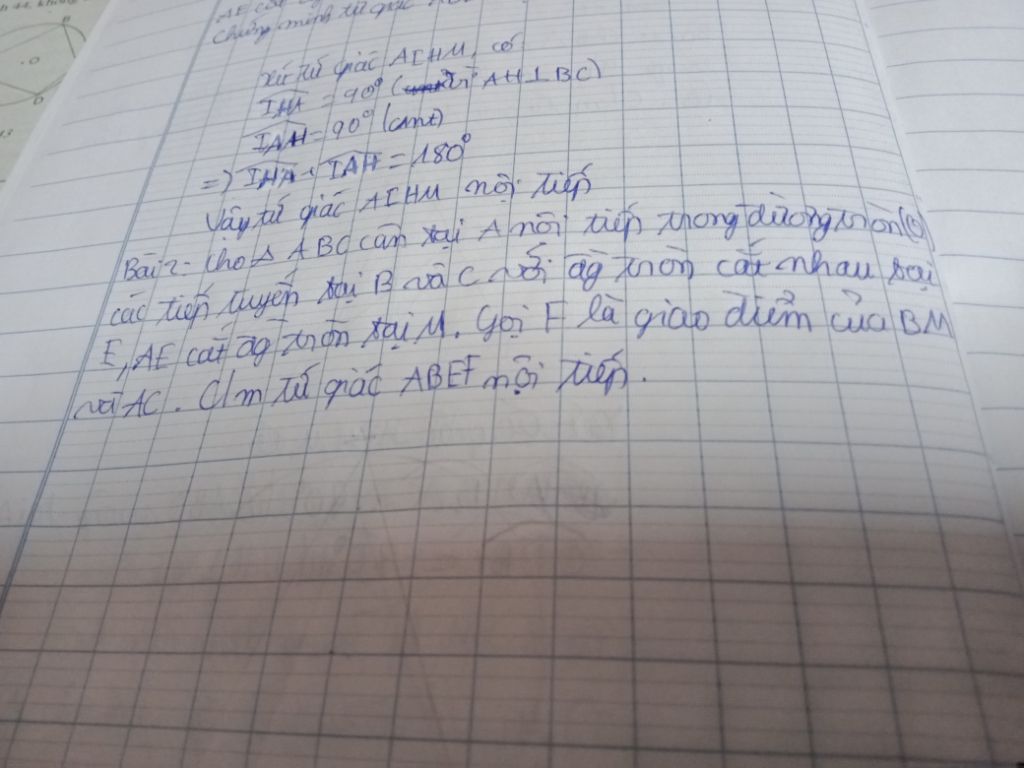 AE cắt
Chứng minh tứ giác
Xét tứ giác AIHM, có
IHA = 90° (vì AH⊥BC)
IAH = 90° (cmt)
=) IHA + IAH = 180°
Vậy tứ giác AIHM nội tiếp
Bài 2: Cho Δ ABC cân tại A nội tiếp trong đường tròn (O)
các tiếp tuyến tại B và C với đg tròn cắt nhau tại
E, AE cắt đg tròn tại M. Gọi F là giao điểm của BM
và AC. C/m tứ giác ABEF nội tiếp.